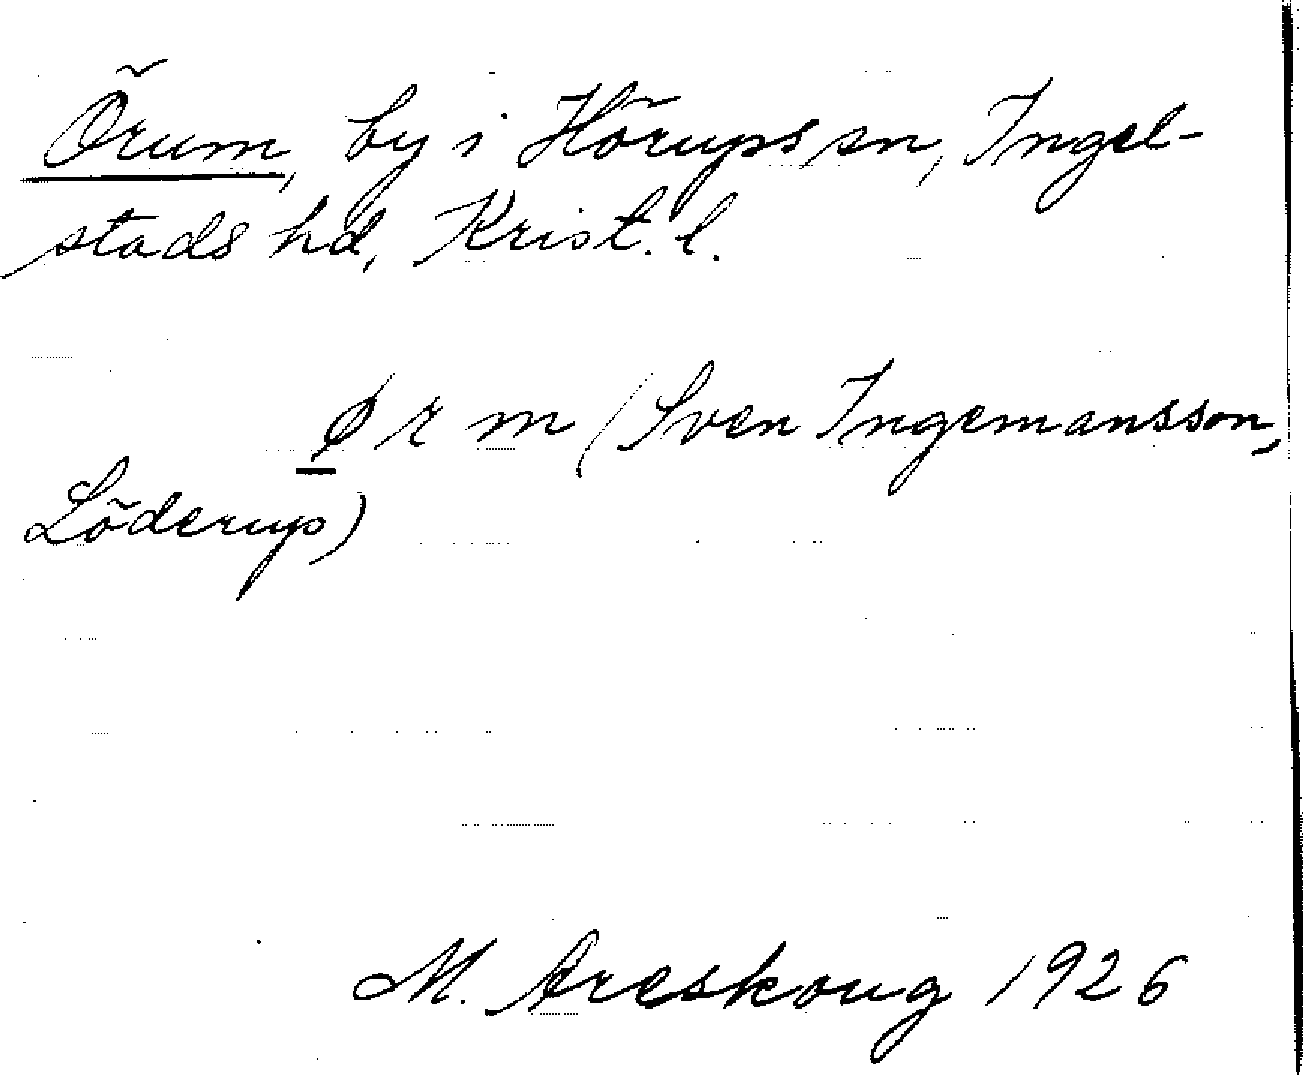 Örum, by i Hörups sn, Ingel-
stads hd, Krist. l.
ø r m (Sven Ingemansson,
Löderup)
M. Areskoug 1926